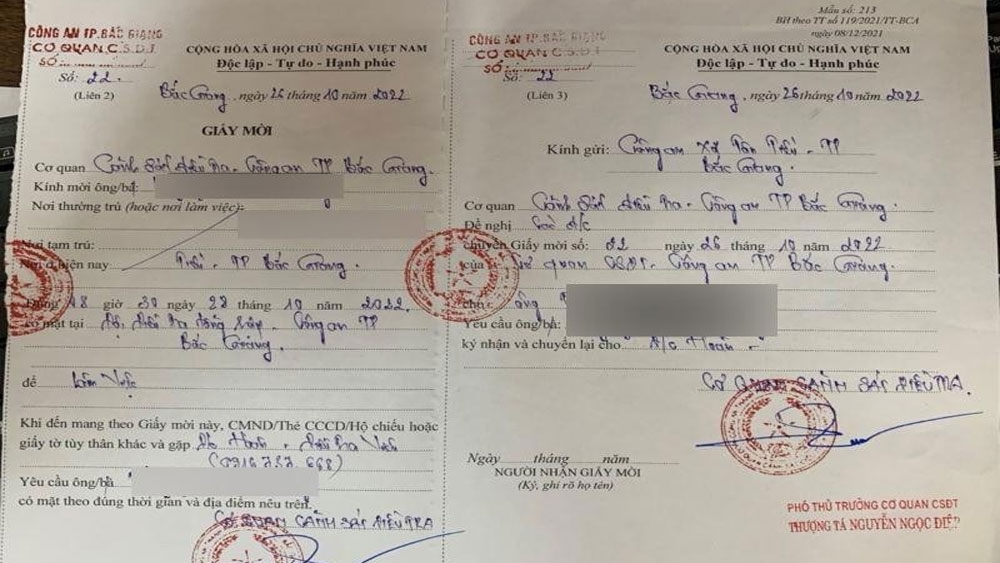 CÔNG AN TP.BẮC GIANG
CƠ QUAN C.S.D.T
SỐ
CỘNG HÒA XÃ HỘI CHỦ NGHĨA VIỆT NAM
Độc lập - Tự do - Hạnh phúc
Số: 22
(Liên 2)
Bắc Giang, ngày 26 tháng 10 năm 2022
GIẤY MỜI
Cơ quan Cảnh sát điều tra - Công an TP Bắc Giang.
Kính mời ông/bà:
Nơi thường trú (hoặc nơi làm việc):
Nơi tạm trú:
Nơi ở hiện nay Tiến - TP Bắc Giang.
Đúng 18 giờ 30 ngày 28 tháng 10 năm 2022
có mặt tại Công an TP
Bắc Giang.
để làm việc
Khi đến mang theo Giấy mời này, CMND/Thẻ CCCD/Hộ chiếu hoặc
giấy tờ tùy thân khác và gặp Hoàn - Điều tra viên
Yêu cầu ông/bà
có mặt theo đúng thời gian và địa điểm nêu trên.
CƠ QUAN CẢNH SÁT ĐIỀU TRA
Mẫu số: 213
BH theo TT số 119/2021/TT-BCA
ngày 08/12/2021
CÔNG AN TP.BẮC GIANG
CƠ QUAN C.S.D.T
SỐ
CỘNG HÒA XÃ HỘI CHỦ NGHĨA VIỆT NAM
Độc lập - Tự do - Hạnh phúc
Số: 22
(Liên 3)
Bắc Giang, ngày 26 tháng 10 năm 2022
Kính gửi: Công an xã Tân Tiến - TP
Bắc Giang.
Cơ quan Cảnh sát điều tra - Công an TP Bắc Giang.
Đề nghị các đ/c
chuyển Giấy mời số: 22 ngày 26 tháng 10 năm 2022
của Cơ quan CSĐT - Công an TP Bắc Giang
cho: ông
Yêu cầu ông/bà:
ký nhận và chuyển lại cho đ/c Hoàn
CƠ QUAN CẢNH SÁT ĐIỀU TRA
Ngày tháng năm
NGƯỜI NHẬN GIẤY MỜI
(Ký, ghi rõ họ tên)
PHÓ THỦ TRƯỞNG CƠ QUAN CSĐT
THƯỢNG TÁ NGUYỄN NGỌC ĐIỆP